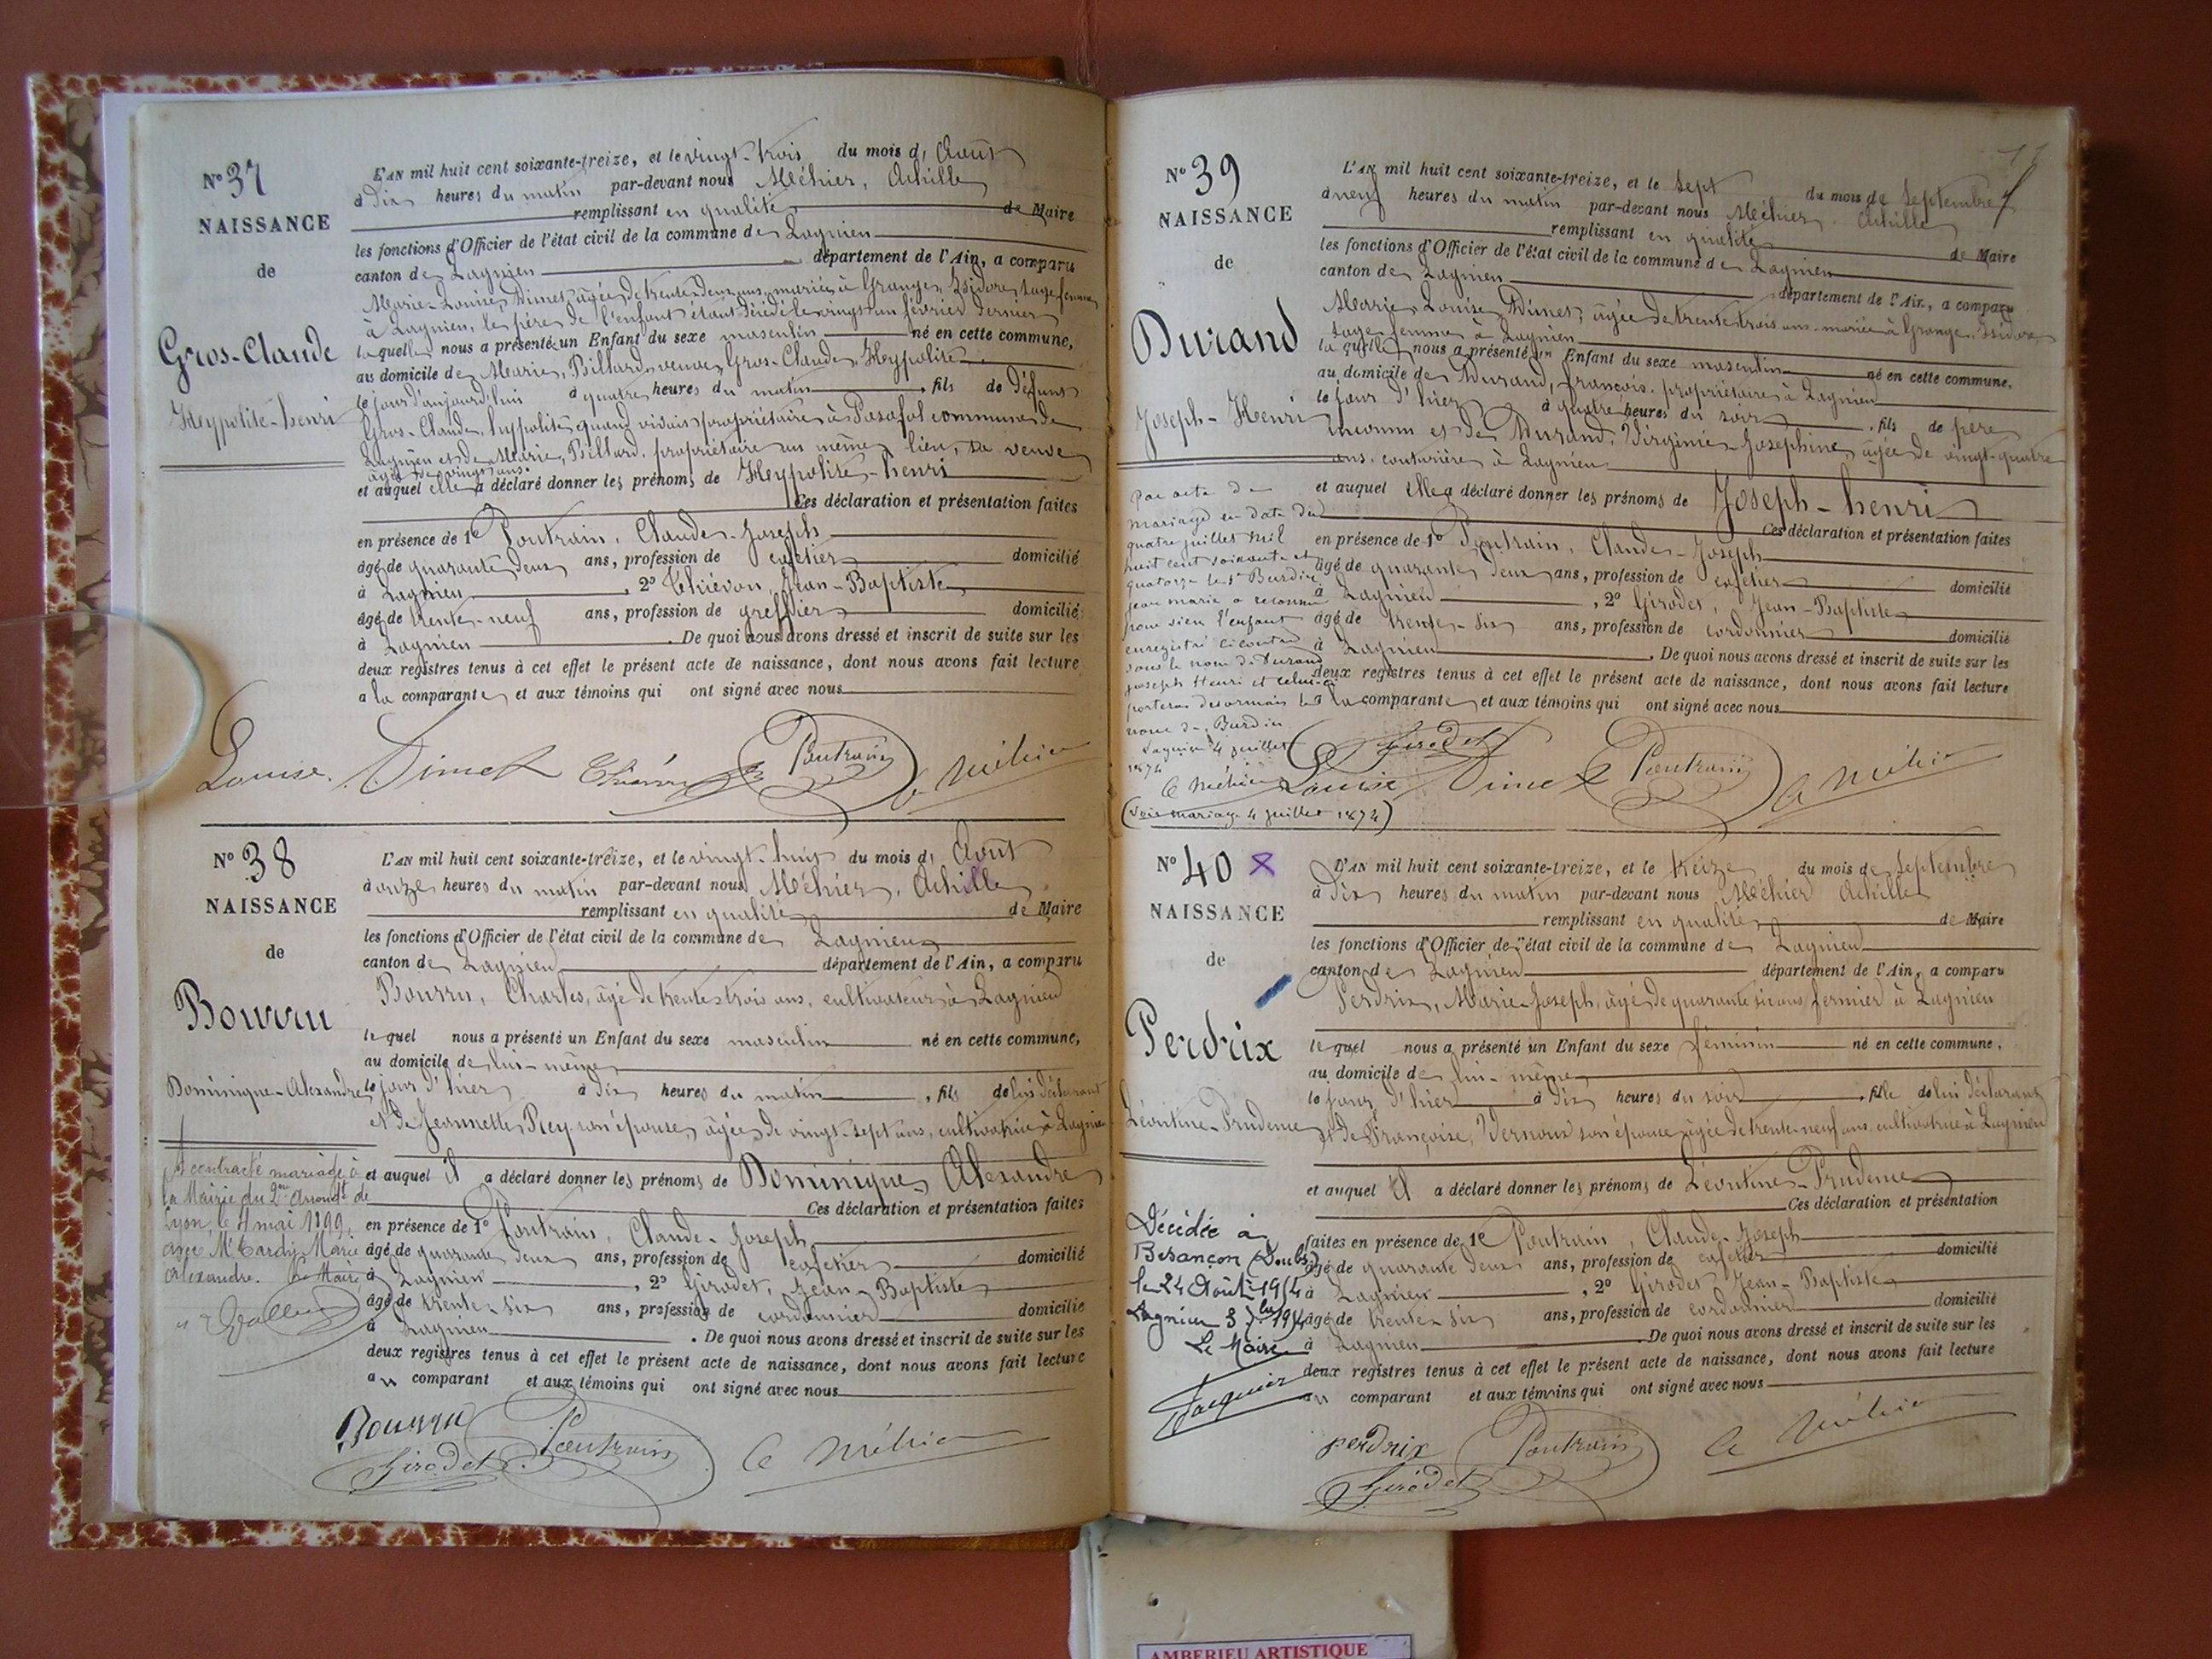 N° 37
NAISSANCE
de
Gros-Claude
Heypolite-henri
L'AN mil huit cent soixante-treize, et le vingt-trois du mois d'Août
à Dix heures du matin par-devant nous Méhier, Achille
remplissant en qualité de Maire
les fonctions d'Officier de l'état civil de la commune de Lagnieu
canton de Lagnieu département de l'Ain, a comparu
Marie-Louise Dimet, âgée de trente-deux ans, mariée à Grange, Isidore, sage femme
à Lagnieu, le père de l'enfant étant décédé le vingt un février dernier
laquelle nous a présenté un Enfant du sexe masculin né en cette commune,
au domicile de Marie, Billard veuve Gros-Claude, Heypolite
le jour d'aujourd'hui à quatre heures du matin, fils de Défunt
Gros-Claude, hyppolite, quand vivait propriétaire à Posafol commune de
Lagnieu et de Marie, Billard, propriétaire au même lieu, sa veuve
âgée de vingt ans.
et auquel elle a déclaré donner les prénoms de Heypolite-henri
Ces déclaration et présentation faites
en présence de 1° Poutrain, Claude-Joseph
âgé de quarante deux ans, profession de cafetier domicilié
à Lagnieu, 2° Thiévon, Jean-Baptiste
âgé de trente-neuf ans, profession de greffier domicilié
à Lagnieu. De quoi nous avons dressé et inscrit de suite sur les
deux registres tenus à cet effet le présent acte de naissance, dont nous avons fait lecture
a la comparante et aux témoins qui ont signé avec nous
Louise Dimet Thiévon Poutrain A Méhier
N° 38
NAISSANCE
de
Bourru
Dominique-Alexandre
L'AN mil huit cent soixante-treize, et le vingt-huit du mois d'Août
à onze heures du matin par-devant nous Méhier, Achille
remplissant en qualité de Maire
les fonctions d'Officier de l'état civil de la commune de Lagnieu
canton de Lagnieu département de l'Ain, a comparu
Bourru, Charles, âgé de trente trois ans, cultivateur à Lagnieu
lequel nous a présenté un Enfant du sexe masculin né en cette commune,
au domicile de lui-même
le jour d'hier à dix heures du matin, fils de lui déclarant
et de Jeannette Rey son épouse, âgée de vingt-sept ans, cultivatrice à Lagnieu
et auquel il a déclaré donner les prénoms de Dominique Alexandre
Ces déclaration et présentation faites
en présence de 1° Poutrain, Claude-Joseph
âgé de quarante deux ans, profession de cafetier domicilié
à Lagnieu, 2° Girodet, Jean-Baptiste
âgé de trente-six ans, profession de cordonnier domicilié
à Lagnieu. De quoi nous avons dressé et inscrit de suite sur les
deux registres tenus à cet effet le présent acte de naissance, dont nous avons fait lecture
au comparant et aux témoins qui ont signé avec nous
A contracté mariage à
la Mairie du 2me Arrondt de
Lyon, le 4 mai 1899,
avec Mlle Tardy Marie
Alexandre. Le Maire
Bourru Poutrain
Girodet A Méhier
N° 39
NAISSANCE
de
Durand
Joseph-Henri
L'AN mil huit cent soixante-treize, et le sept du mois de Septembre
à neuf heures du matin par-devant nous Méhier Achille
remplissant en qualité de Maire
les fonctions d'Officier de l'état civil de la commune de Lagnieu
canton de Lagnieu département de l'Ain, a comparu
Marie Louise Dimet, âgée de trente trois ans mariée à Grange Isidore
sage femme à Lagnieu
laquelle nous a présenté un Enfant du sexe masculin né en cette commune,
au domicile de Durand, françois propriétaire à Lagnieu
le jour d'hier à quatre heures du soir, fils de père
inconnu et de Durand, Virginie-Josephine, âgée de vingt-quatre
ans, couturière à Lagnieu
et auquel elle a déclaré donner les prénoms de Joseph-henri
Ces déclaration et présentation faites
en présence de 1° Poutrain, Claude-Joseph
âgé de quarante deux ans, profession de cafetier domicilié
à Lagnieu, 2° Girodet, Jean-Baptiste
âgé de trente-six ans, profession de cordonnier domicilié
à Lagnieu. De quoi nous avons dressé et inscrit de suite sur les
deux registres tenus à cet effet le présent acte de naissance, dont nous avons fait lecture
à la comparante et aux témoins qui ont signé avec nous
Par acte de
mariage en date du
quatre juillet mil
huit cent soixante et
quatorze le Sr Burdin
jean marie a reconnu
pour sien l'enfant
enregistré ci contre
sous le nom de Durand
joseph Henri et celui-ci
portera desormais le
nom de Burdin
Lagnieu 4 juillet
1874
A Méhier
(voir mariage 4 juillet 1874)
Girodet
Louise Dimet Poutrain A Méhier
N° 40 x
NAISSANCE
de
Perdrix
Léontine-Prudence
L'AN mil huit cent soixante-treize, et le treize du mois de Septembre
à Dix heures du matin par-devant nous Méhier Achille
remplissant en qualité de Maire
les fonctions d'Officier de l'état civil de la commune de Lagnieu
canton de Lagnieu département de l'Ain, a comparu
Perdrix, Marie-Joseph, âgé de quarante six ans fermier à Lagnieu
lequel nous a présenté un Enfant du sexe féminin né en cette commune,
au domicile de lui-même
le jour d'hier à dix heures du soir, fille de lui déclarant
et de Françoise, Vernoux son épouse âgée de trente-neuf ans, cultivatrice à Lagnieu
et auquel il a déclaré donner les prénoms de Léontine-Prudence
Ces déclaration et présentation
faites en présence de 1° Poutrain, Claude-Joseph
âgé de quarante deux ans, profession de cafetier domicilié
à Lagnieu, 2° Girodet Jean-Baptiste
âgé de trente-six ans, profession de cordonnier domicilié
à Lagnieu. De quoi nous avons dressé et inscrit de suite sur les
deux registres tenus à cet effet le présent acte de naissance, dont nous avons fait lecture
au comparant et aux témoins qui ont signé avec nous
Décédée à
Besançon (Doubs)
le 24 Août 1954
Lagnieu 3 7bre 1954
Le Maire
Jacquier
perdrix Poutrain A Méhier
Girodet
AMBERIEU ARTISTIQUE